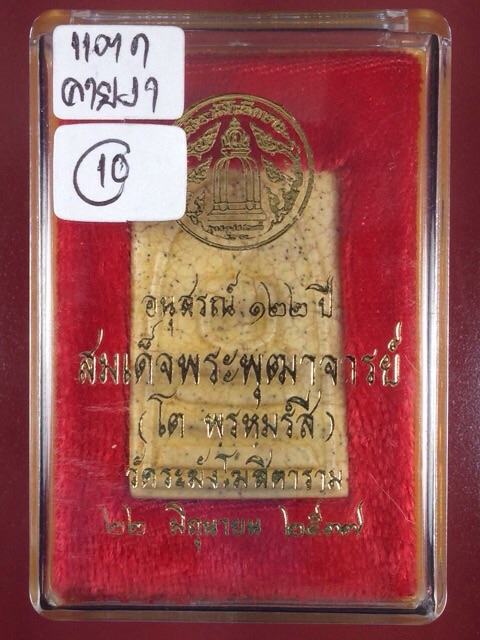 แตก
ลายงา
10
อนุสรณ์ ๑๒๒ ปี
สมเด็จพระพุฒาจารย์
(โต พฺรหฺมรํสี)
วัดระฆังโฆสิตาราม
๒๒ มิถุนายน ๒๕๓๗